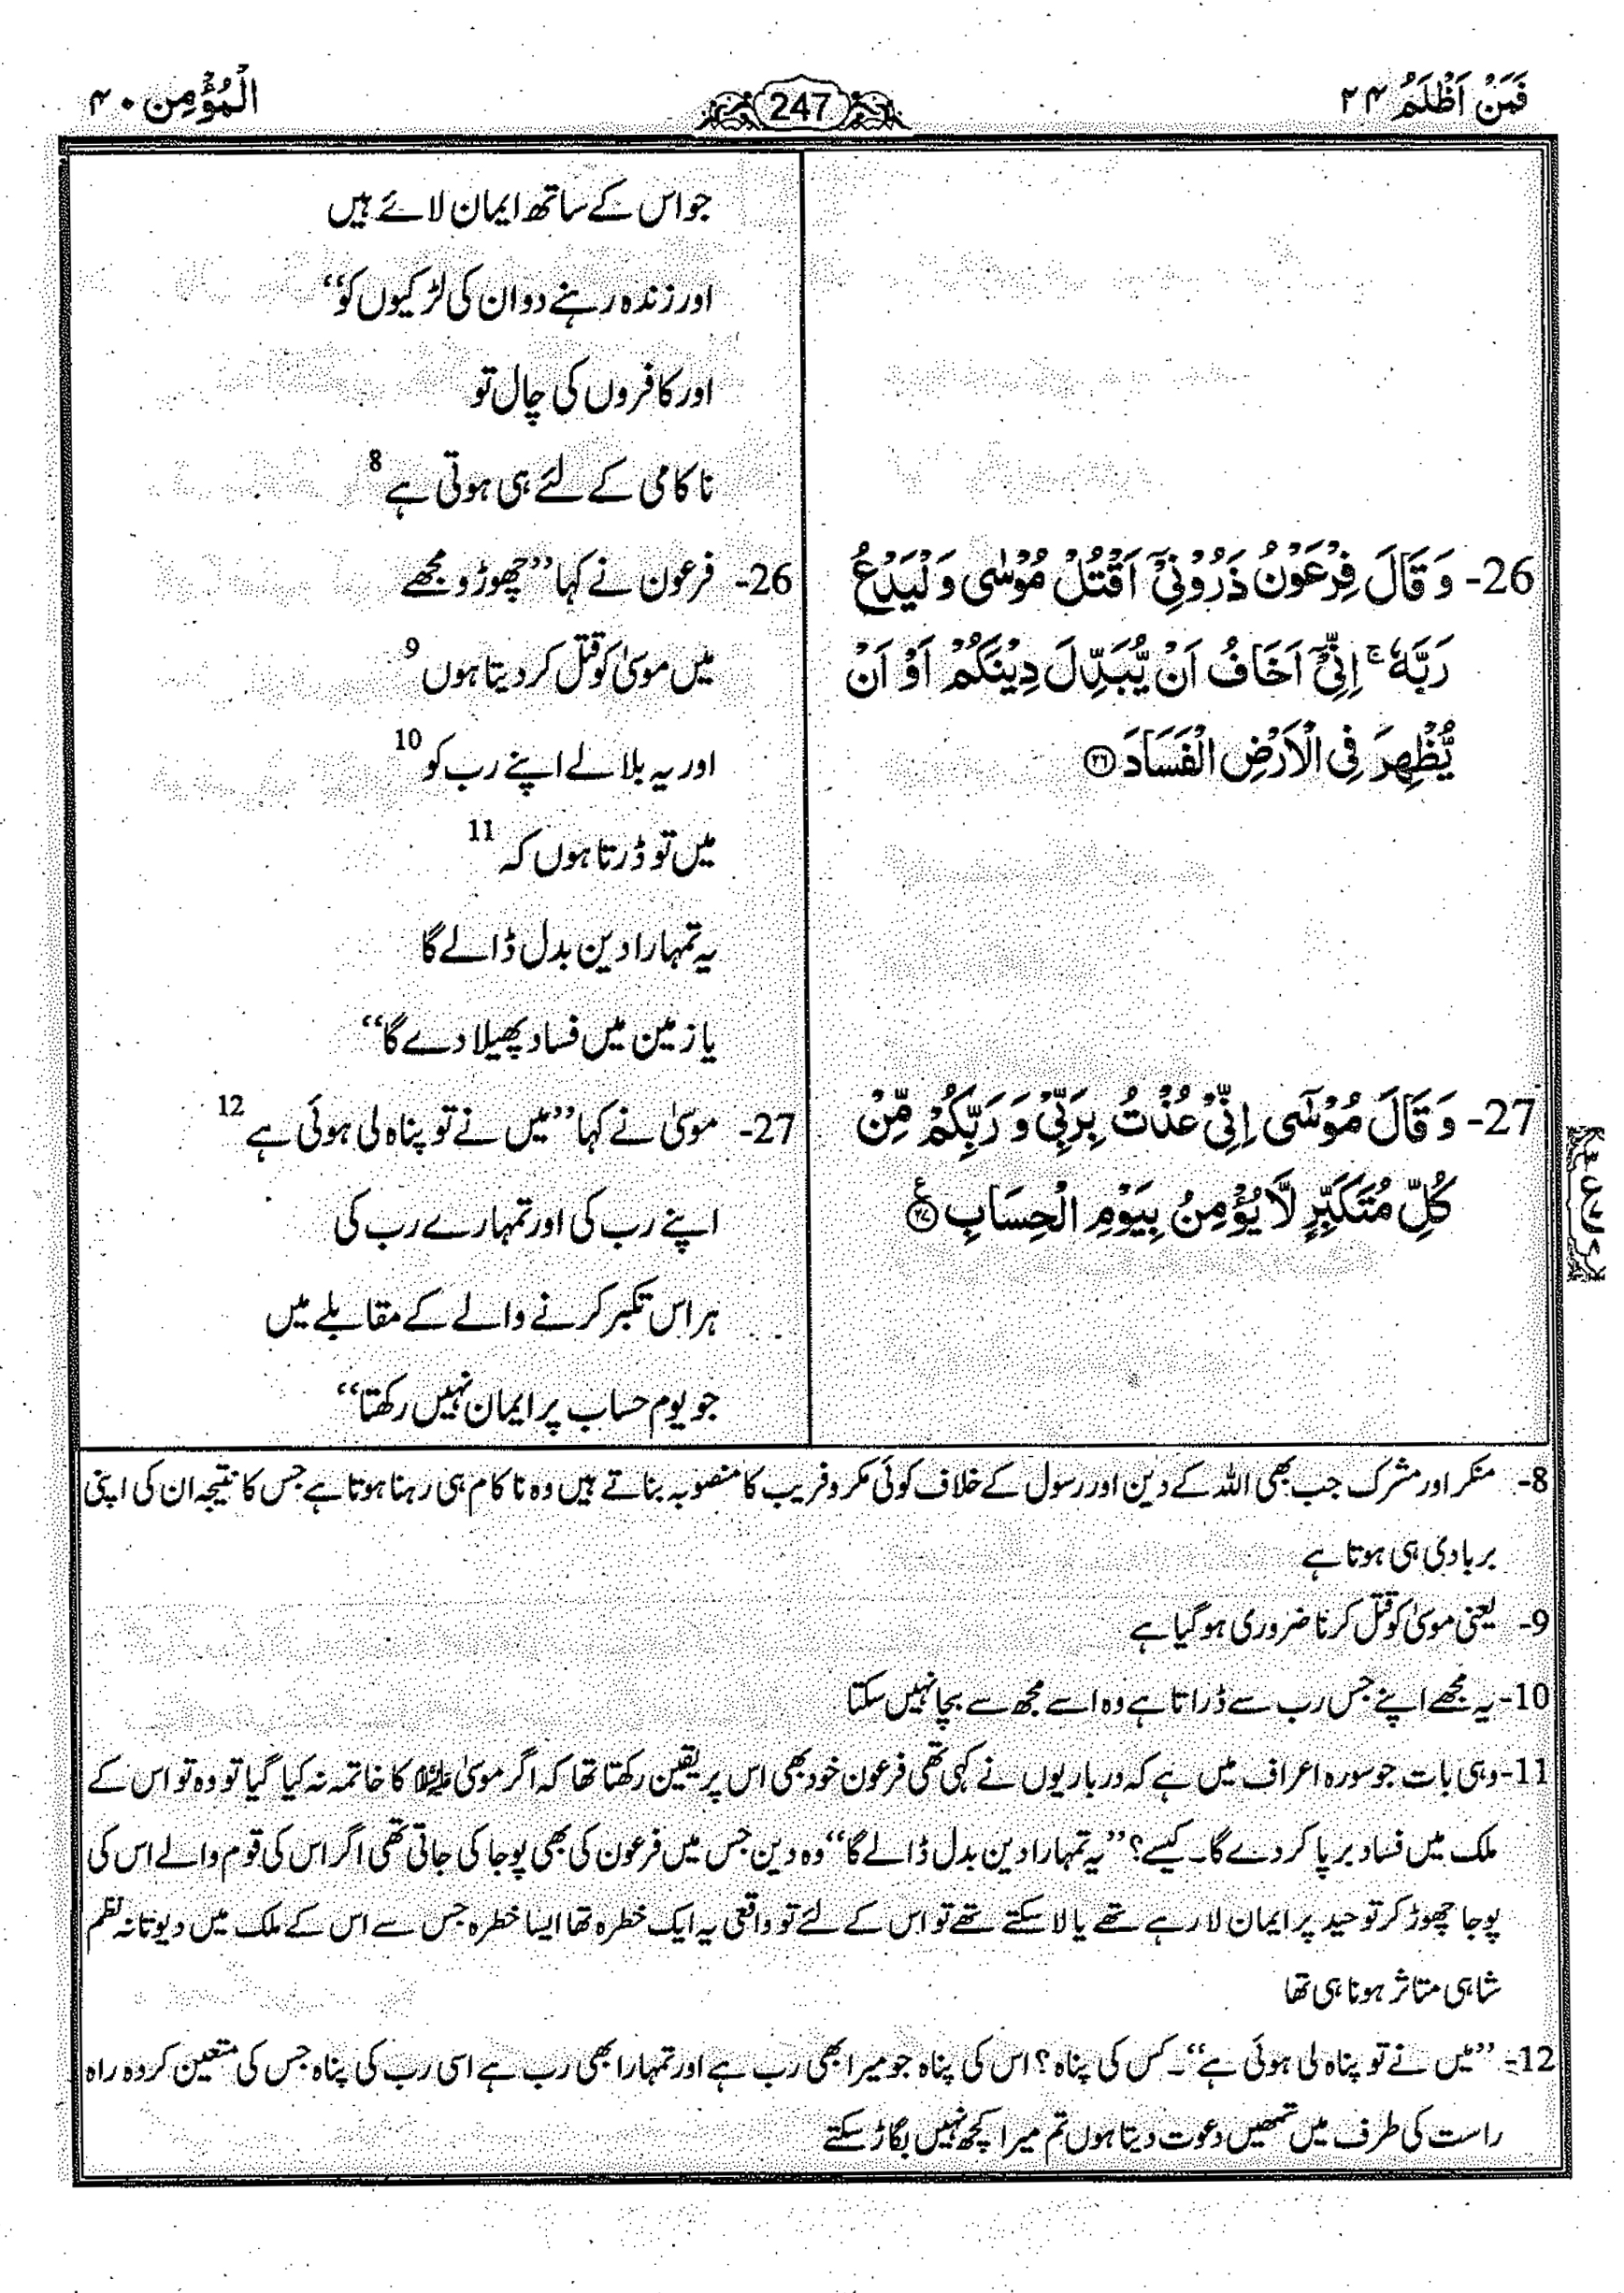 فَمَنْ اَظْلَمُ ۲۴
247
الْمُؤْمِن ۴۰
جو اس کے ساتھ ایمان لائے ہیں
اور زندہ رہنے دو ان کی لڑکیوں کو‘‘
اور کافروں کی چال تو
ناکامی کے لئے ہی ہوتی ہے 8
26- وَ قَالَ فِرْعَوْنُ ذَرُوْنِیْۤ اَقْتُلْ مُوْسٰی وَ لْیَدْعُ
رَبَّهٗ ۚ اِنِّیْۤ اَخَافُ اَنْ یُّبَدِّلَ دِیْنَكُمْ اَوْ اَنْ
یُّظْهِرَ فِی الْاَرْضِ الْفَسَادَ ﴿۲۶﴾
26- فرعون نے کہا ’’چھوڑو مجھے
میں موسیٰ کو قتل کر دیتا ہوں 9
اور یہ بلا لے اپنے رب کو 10
میں تو ڈرتا ہوں کہ 11
یہ تمہارا دین بدل ڈالے گا
یا زمین میں فساد پھیلا دے گا‘‘
27- وَ قَالَ مُوْسٰۤی اِنِّیْ عُذْتُ بِرَبِّیْ وَ رَبِّكُمْ مِّنْ
كُلِّ مُتَكَبِّرٍ لَّا یُؤْمِنُ بِیَوْمِ الْحِسَابِ ﴿۲۷﴾ ع
27- موسیٰ نے کہا ’’میں نے تو پناہ لی ہوئی ہے 12
اپنے رب کی اور تمہارے رب کی
ہر اس تکبر کرنے والے کے مقابلے میں
جو یوم حساب پر ایمان نہیں رکھتا‘‘
8- منکر اور مشرک جب بھی اللہ کے دین اور رسول کے خلاف کوئی مکر و فریب کا منصوبہ بناتے ہیں وہ ناکام ہی رہنا ہوتا ہے جس کا نتیجہ ان کی اپنی
بربادی ہی ہوتا ہے
9- یعنی موسیٰ کو قتل کرنا ضروری ہو گیا ہے
10- یہ مجھے اپنے جس رب سے ڈراتا ہے وہ اسے مجھ سے بچا نہیں سکتا
11- وہی بات جو سورہ اعراف میں ہے کہ درباریوں نے کہی تھی فرعون خود بھی اس پر یقین رکھتا تھا کہ اگر موسیٰ علیہ السلام کا خاتمہ نہ کیا گیا تو وہ تو اس کے
ملک میں فساد برپا کر دے گا۔ کیسے؟ ’’یہ تمہارا دین بدل ڈالے گا‘‘ وہ دین جس میں فرعون کی بھی پوجا کی جاتی تھی اگر اس کی قوم والے اس کی
پوجا چھوڑ کر توحید پر ایمان لا رہے تھے یا لا سکتے تھے تو اس کے لئے تو واقعی یہ ایک خطرہ تھا ایسا خطرہ جس سے اس کے ملک میں دیوتانہ نظم
شاہی متاثر ہونا ہی تھا
12- ’’میں نے تو پناہ لی ہوئی ہے‘‘۔ کس کی پناہ؟ اس کی پناہ جو میرا بھی رب ہے اور تمہارا بھی رب ہے اسی رب کی پناہ جس کی متعین کردہ راہ
راست کی طرف میں تمھیں دعوت دیتا ہوں تم میرا کچھ نہیں بگاڑ سکتے